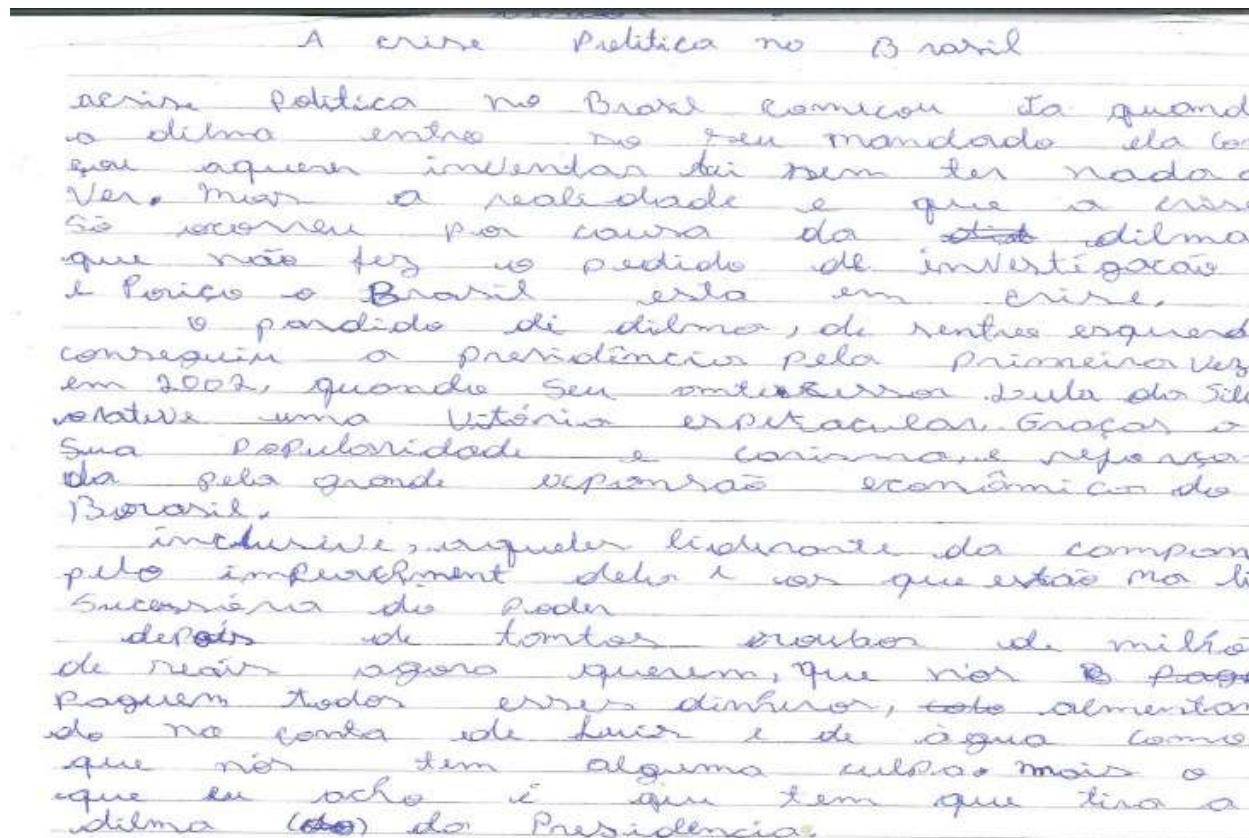 A crise Pulitica no Brasil
acrise Política no Brasil comicou Ja quand
a dilma entro no seu mandado ela Com
çou aquerer inventar lei sem ter nada a
Ver. mias a realidade e que a crise
Só ocorreu por causa da dilma
que não fez o pedido de investigacão
e Poriço o Brasil esta em crise.
o pardido di dilma, de sentro esquerd
conseguiu a presidência pela primeira vez
em 2002, quando seu antecessor Lula da Silv
uma Vitória espetacular. Graças a
Sua Popularidade e carisma, e reforça
da pela grande expansão econômica do
Borasil.
inclusive, aqueles liderante da campan
pelo impeachment dela é os que estão na li
Sucessória do Poder
depois de tantos roubos de milhõ
de reais agora querem, que nós
paguem todos esses dinheiros, almentan
do na conta de Luis e de àgua como
que nós tem alguma culpa. mais o
que eu acho é qiu tem que tira a
dilma da Presidência.